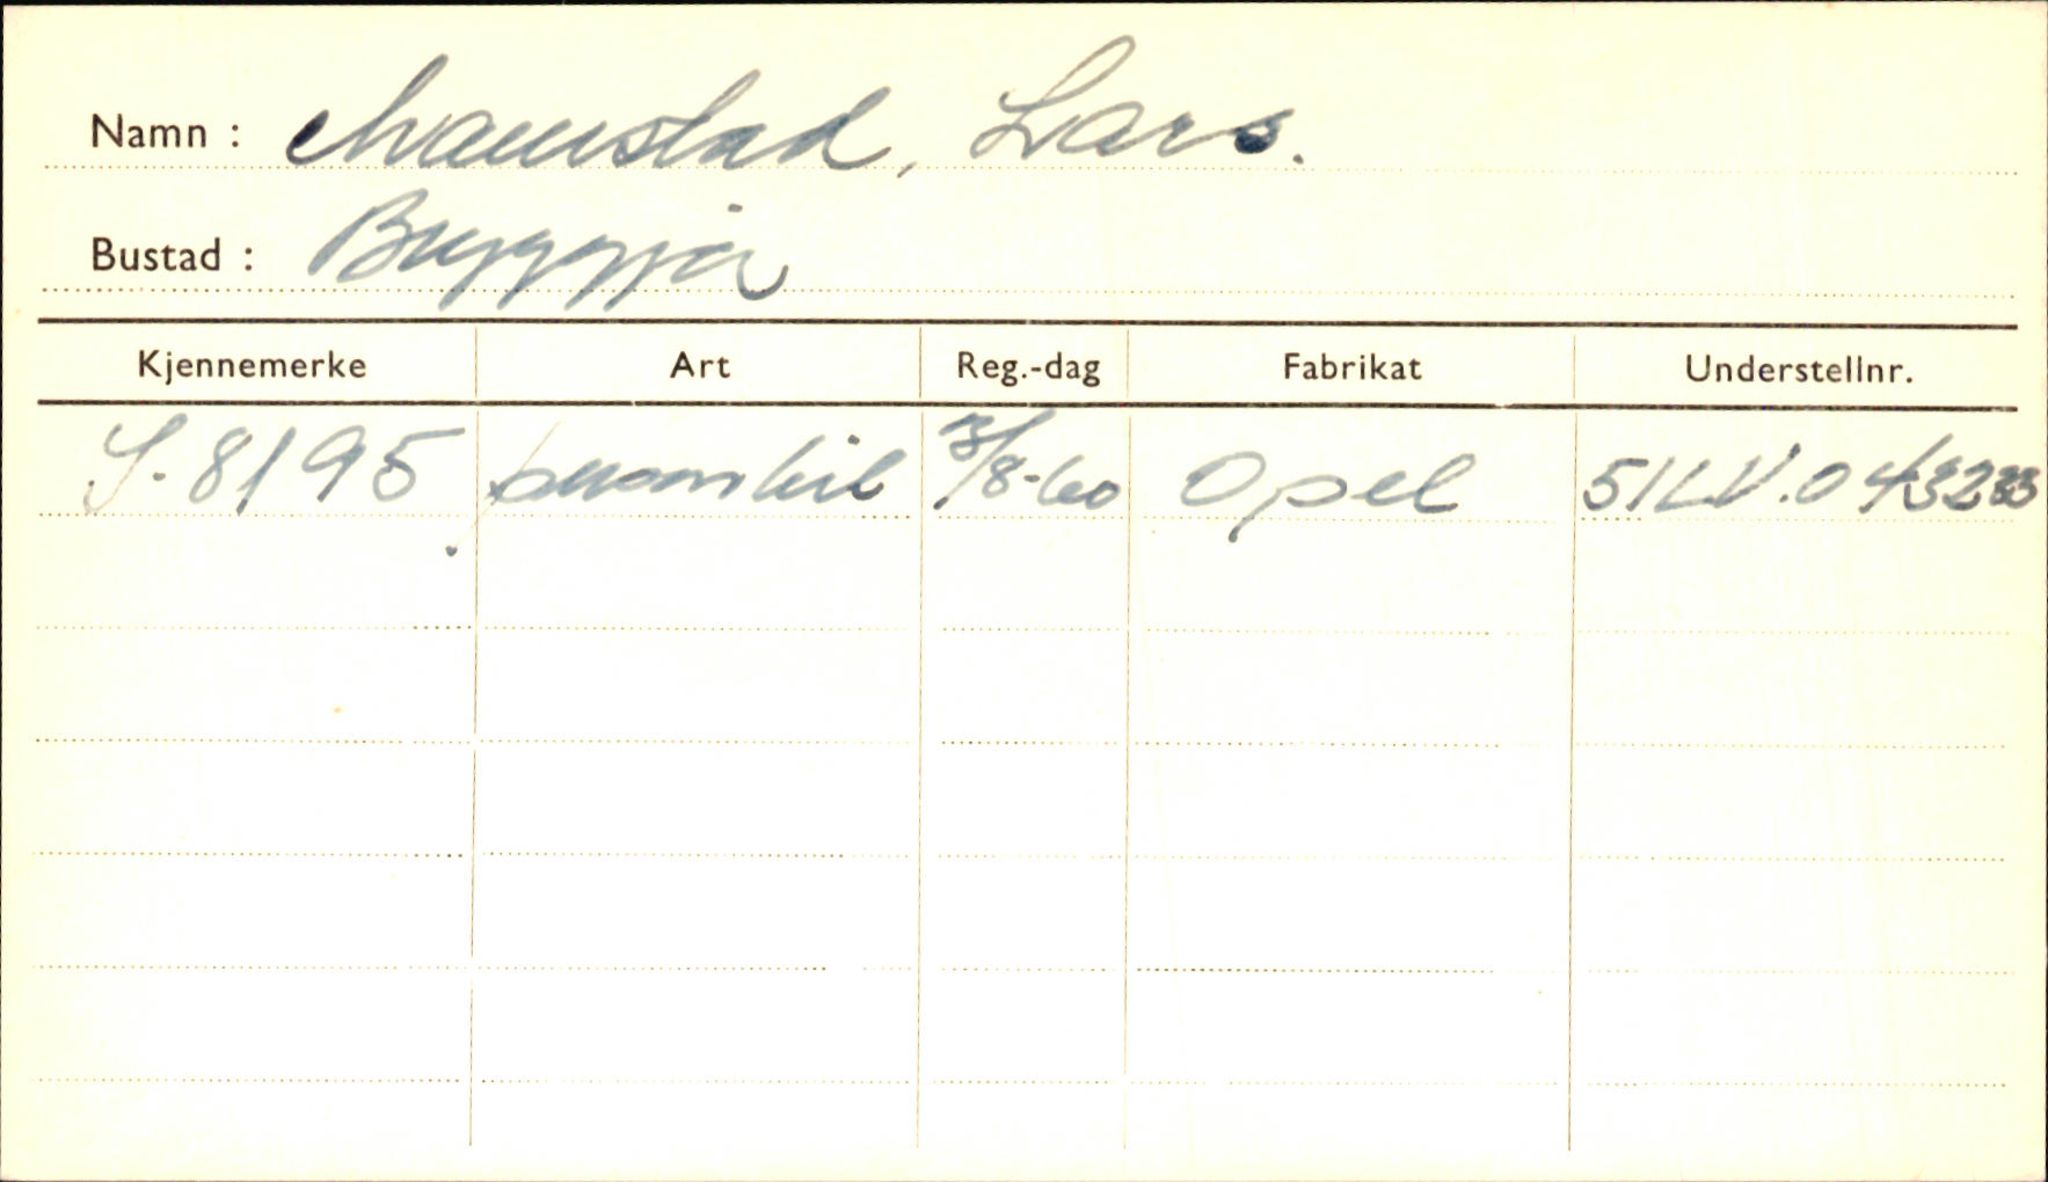 Namn : Maurstad, Lars.
Bustad : Bryggja
Kjennemerke Art Reg.-dag Fabrikat Understellnr.
S-8195 personbil /8-60 Opel 51LV.043233